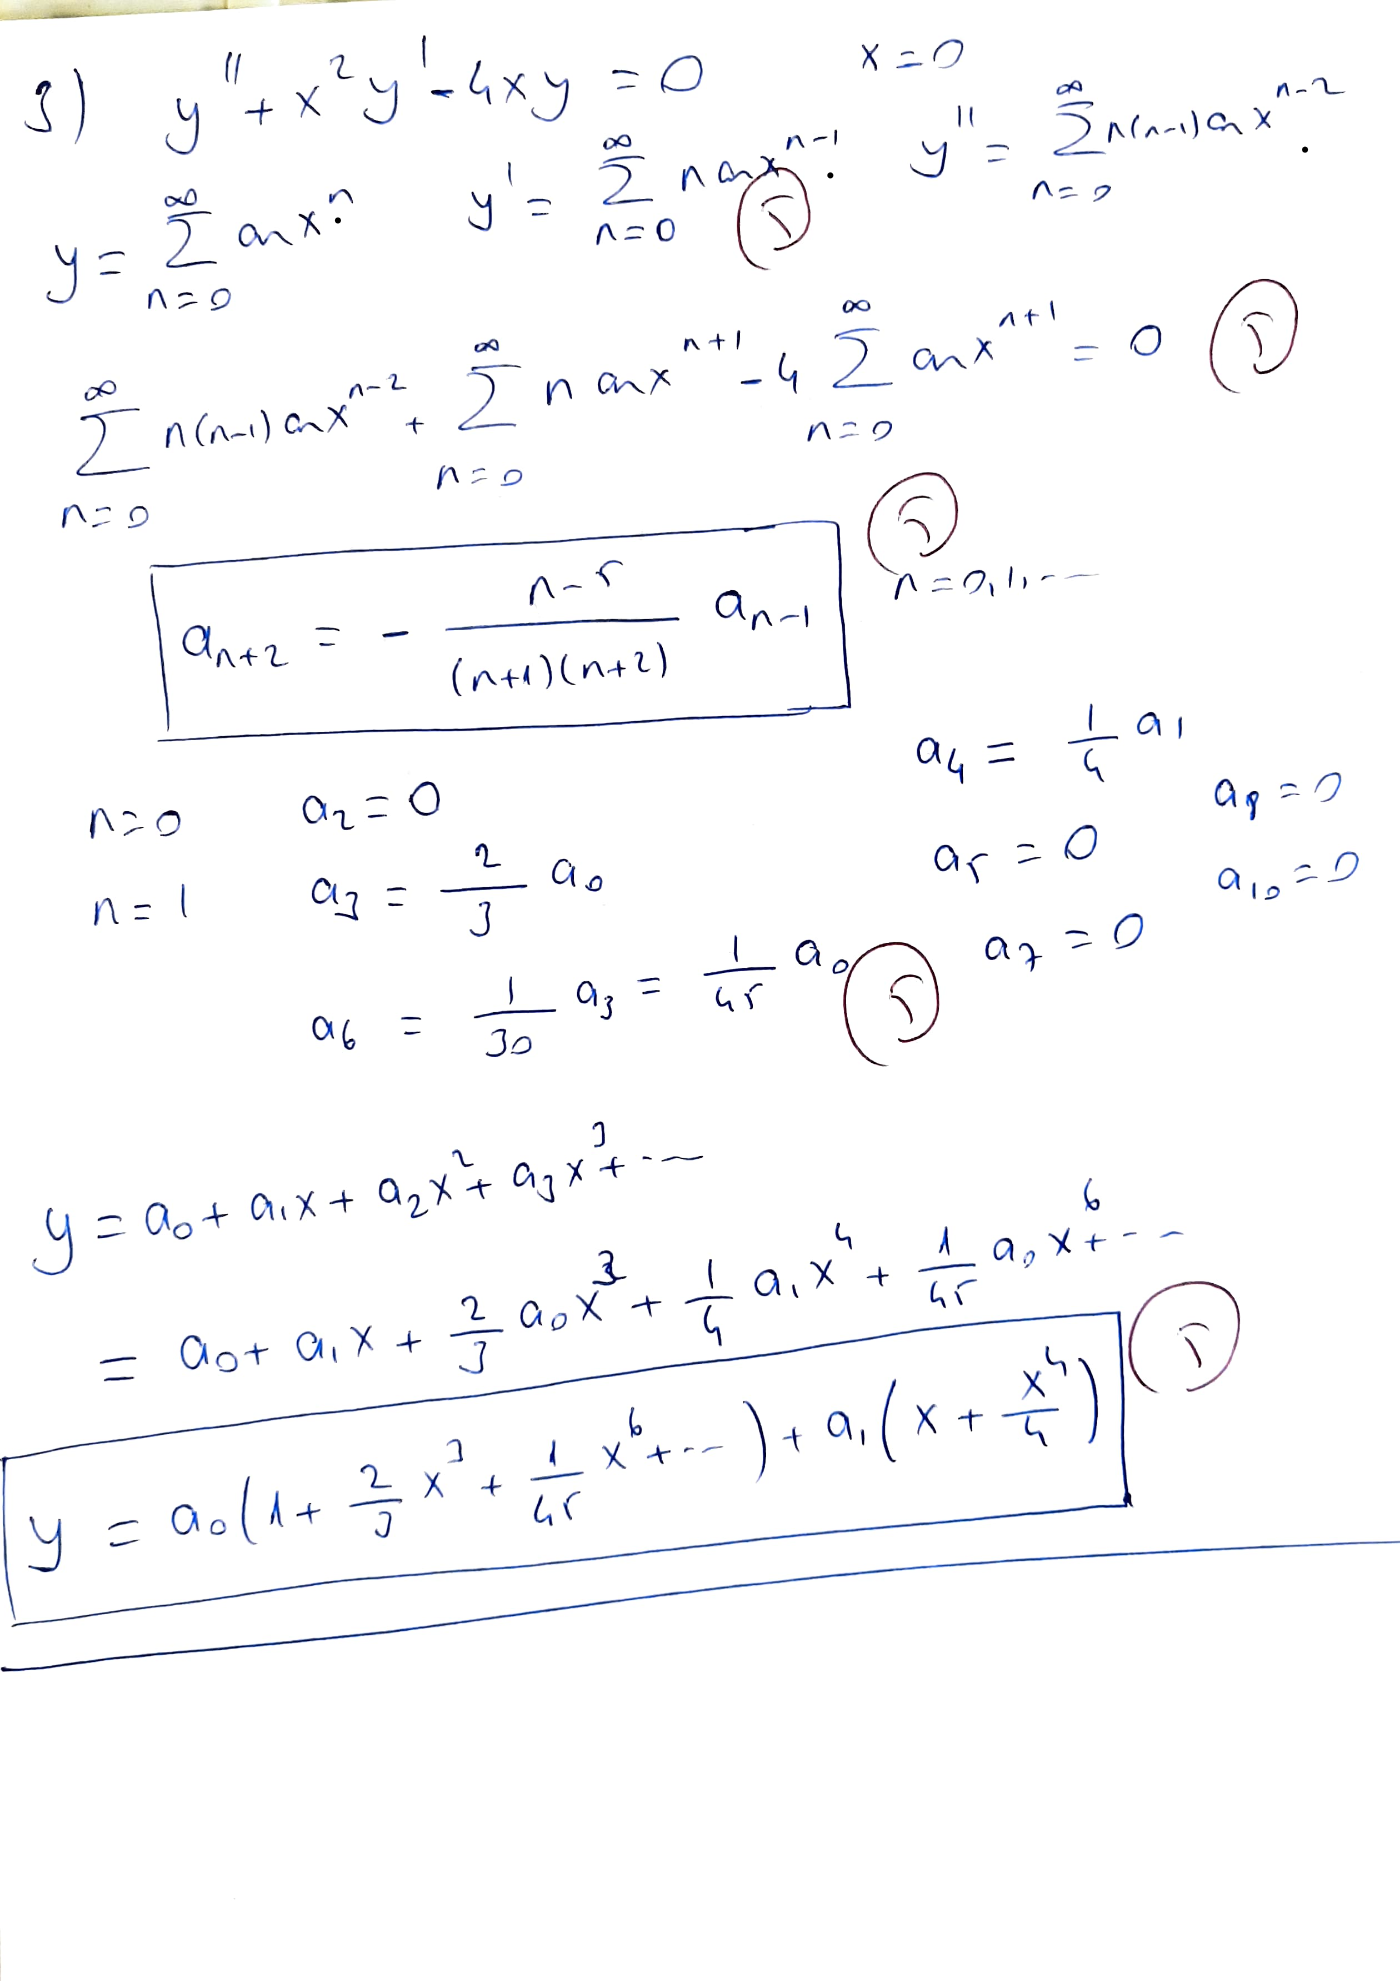 3) y'' + x²y' - 4xy = 0 x = 0
y = ∑_{n=0}^{∞} aₙxⁿ. y' = ∑_{n=0}^{∞} n aₙxⁿ⁻¹. y'' = ∑_{n=0}^{∞} n(n-1)aₙxⁿ⁻². (5)
∑_{n=0}^{∞} n(n-1)aₙxⁿ⁻² + ∑_{n=0}^{∞} n aₙxⁿ⁺¹ - 4 ∑_{n=0}^{∞} aₙxⁿ⁺¹ = 0 (5)
aₙ₊₂ = - \frac{n-5}{(n+1)(n+2)} aₙ₋₁ (5) n = 0,1,...
a₄ = \frac{1}{4} a₁
n=0 a₂ = 0 a₈ = 0
n=1 a₃ = \frac{2}{3} a₀ a₅ = 0 a₁₀ = 0
a₆ = \frac{1}{30} a₃ = \frac{1}{45} a₀ (5) a₇ = 0
y = a₀ + a₁x + a₂x² + a₃x³ + ...
= a₀ + a₁x + \frac{2}{3} a₀x³ + \frac{1}{4} a₁x⁴ + \frac{1}{45} a₀x⁶ + ...
y = a₀(1 + \frac{2}{3} x³ + \frac{1}{45} x⁶ + ...) + a₁(x + \frac{x⁴}{4}) (5)